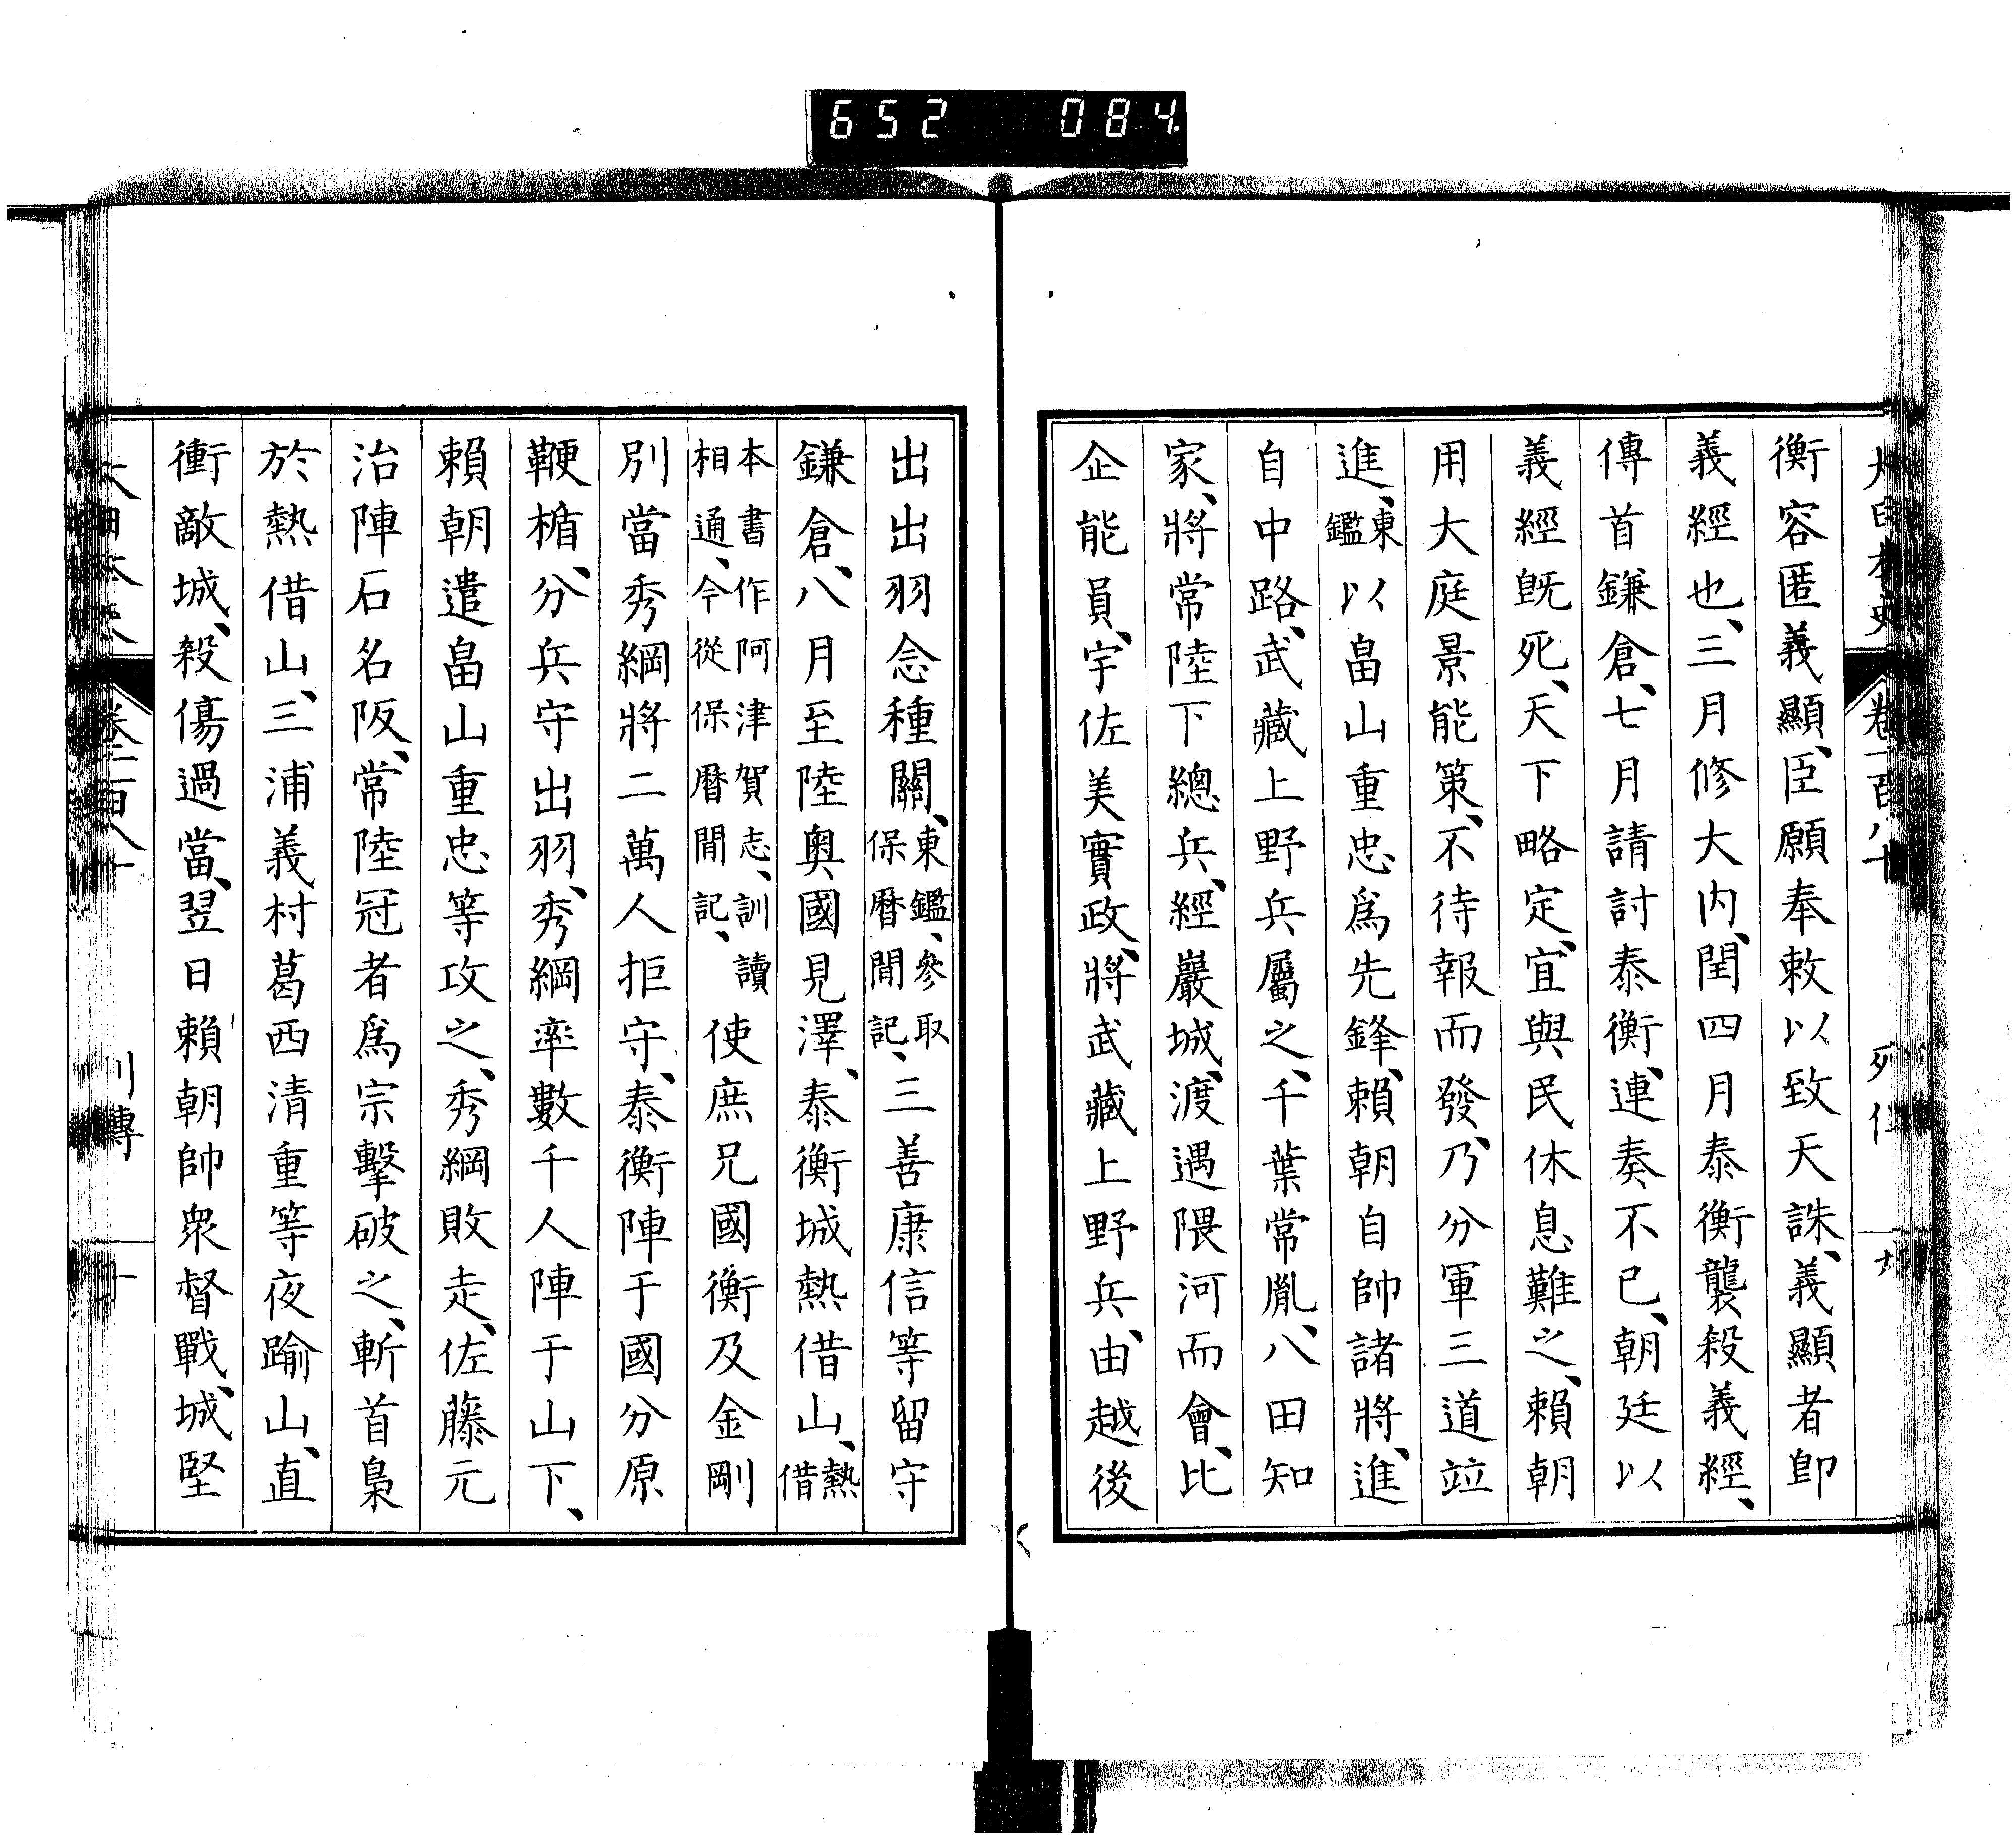 652 084
大日本史 卷一百八十 列傳
衡容匿義顯、臣願奉敕以致天誅、義顯者卽
義經也、三月修大內、閏四月泰衡襲殺義經、
傳首鎌倉、七月請討泰衡、連奏不已、朝廷以
義經旣死、天下略定、宜與民休息難之、賴朝
用大庭景能策、不待報而發、乃分軍三道竝
進、東鑑以畠山重忠爲先鋒、賴朝自帥諸將、進
自中路、武藏上野兵屬之、千葉常胤、八田知
家、將常陸下總兵、經巖城、渡遇隈河而會、比
企能員、宇佐美實政、將武藏上野兵、由越後
出出羽念種關、東鑑、參取保曆間記、三善康信等留守
鎌倉、八月至陸奧國見澤、泰衡城熱借山、熱借
本書作阿津賀志、訓讀相通、今從保曆間記、使庶兄國衡及金剛
別當秀綱將二萬人拒守、泰衡陣于國分原
鞭楯、分兵守出羽、秀綱率數千人陣于山下、
賴朝遣畠山重忠等攻之、秀綱敗走、佐藤元
治陣石名阪、常陸冠者爲宗擊破之、斬首梟
於熱借山、三浦義村葛西清重等夜踰山、直
衝敵城、殺傷過當、翌日賴朝帥眾督戰、城堅
卷一百八十 列傳